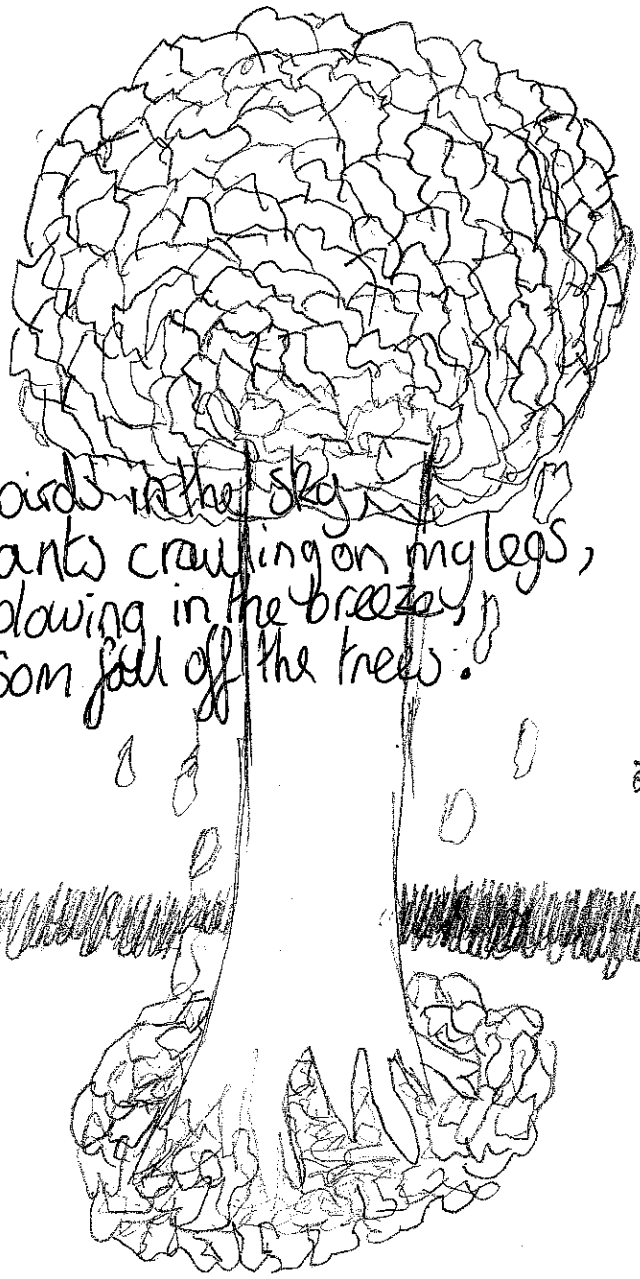 birds in the sky,
ants crawling on my legs,
blowing in the breeze,
som fall off the trees.